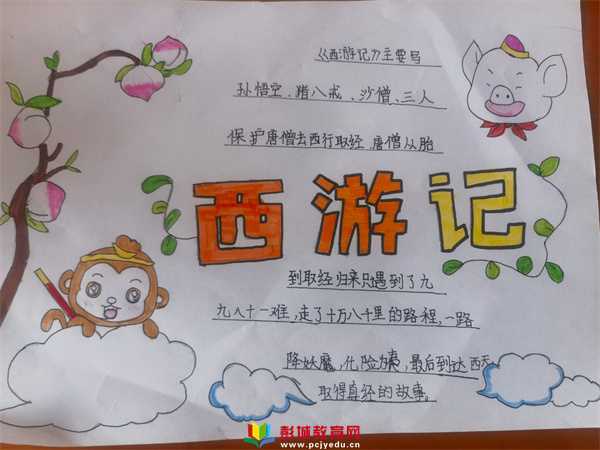 《西游记》主要写
孙悟空、猪八戒、沙僧、三人
保护唐僧去西行取经,唐僧从胎
西游记
到取经归来只遇到了九
九八十一难,走了十万八千里的路程,一路
降妖魔,化险为夷,最后到达西天
取得真经的故事。
彭城教育网
www.pcjyedu.cn